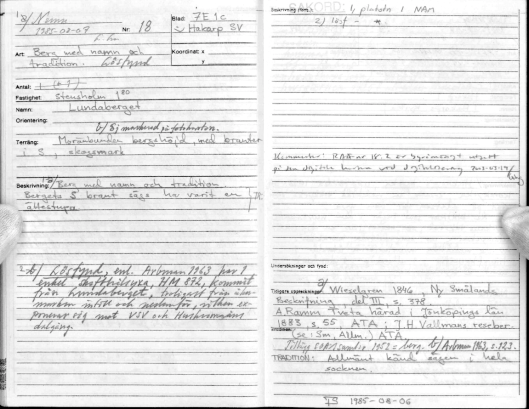 1985-08-07
Nr: 18
Blad: 7E 1c
Hakarp SV
Koordinat: x
x
Art: Berg med namn och
tradition. Lösfynd
Antal: 1
Fastighet: Stensholm 1:80
Namn: Lundaberget
Orientering:
b/ Ej markerad på fotokartan.
Terräng: Moränbunden bergshöjd, med branter
i S, skogsmark
Beskrivning: a/ Berg med namn och tradition
Bergets S brant säges ha varit en
ättestupa.
b/ Lösfynd, enl. Arbman 1963 har 1
enkel skafthålsyxa, HM 672, kommit
från Lundaberget, troligast från
marken intill och nedanför, vilken ex-
ponerar sig mot VSV och Huskvarnaåns
dalgång.
Beskrivning (forts.)
1) platsen i NAM
2) lösf -
Kommentar: RAÄ-nr
på den digitala kartan vid digitalisering
Undersökningar och fynd:
Tidigare uppteckningar: a/ Wieselgren 1846, Ny Smålands
Beskrifning, del III, s. 378
A. Ramm Tveta härad i Jönköpings län
1883, s. 55 ATA; J H Vallmans reseber.
(se: Sm, Allm.) ATA,
b/ Arbman 1963, s. 123.
TRADITION: Allmänt känd sägen i hela
socknen.
1985-08-06